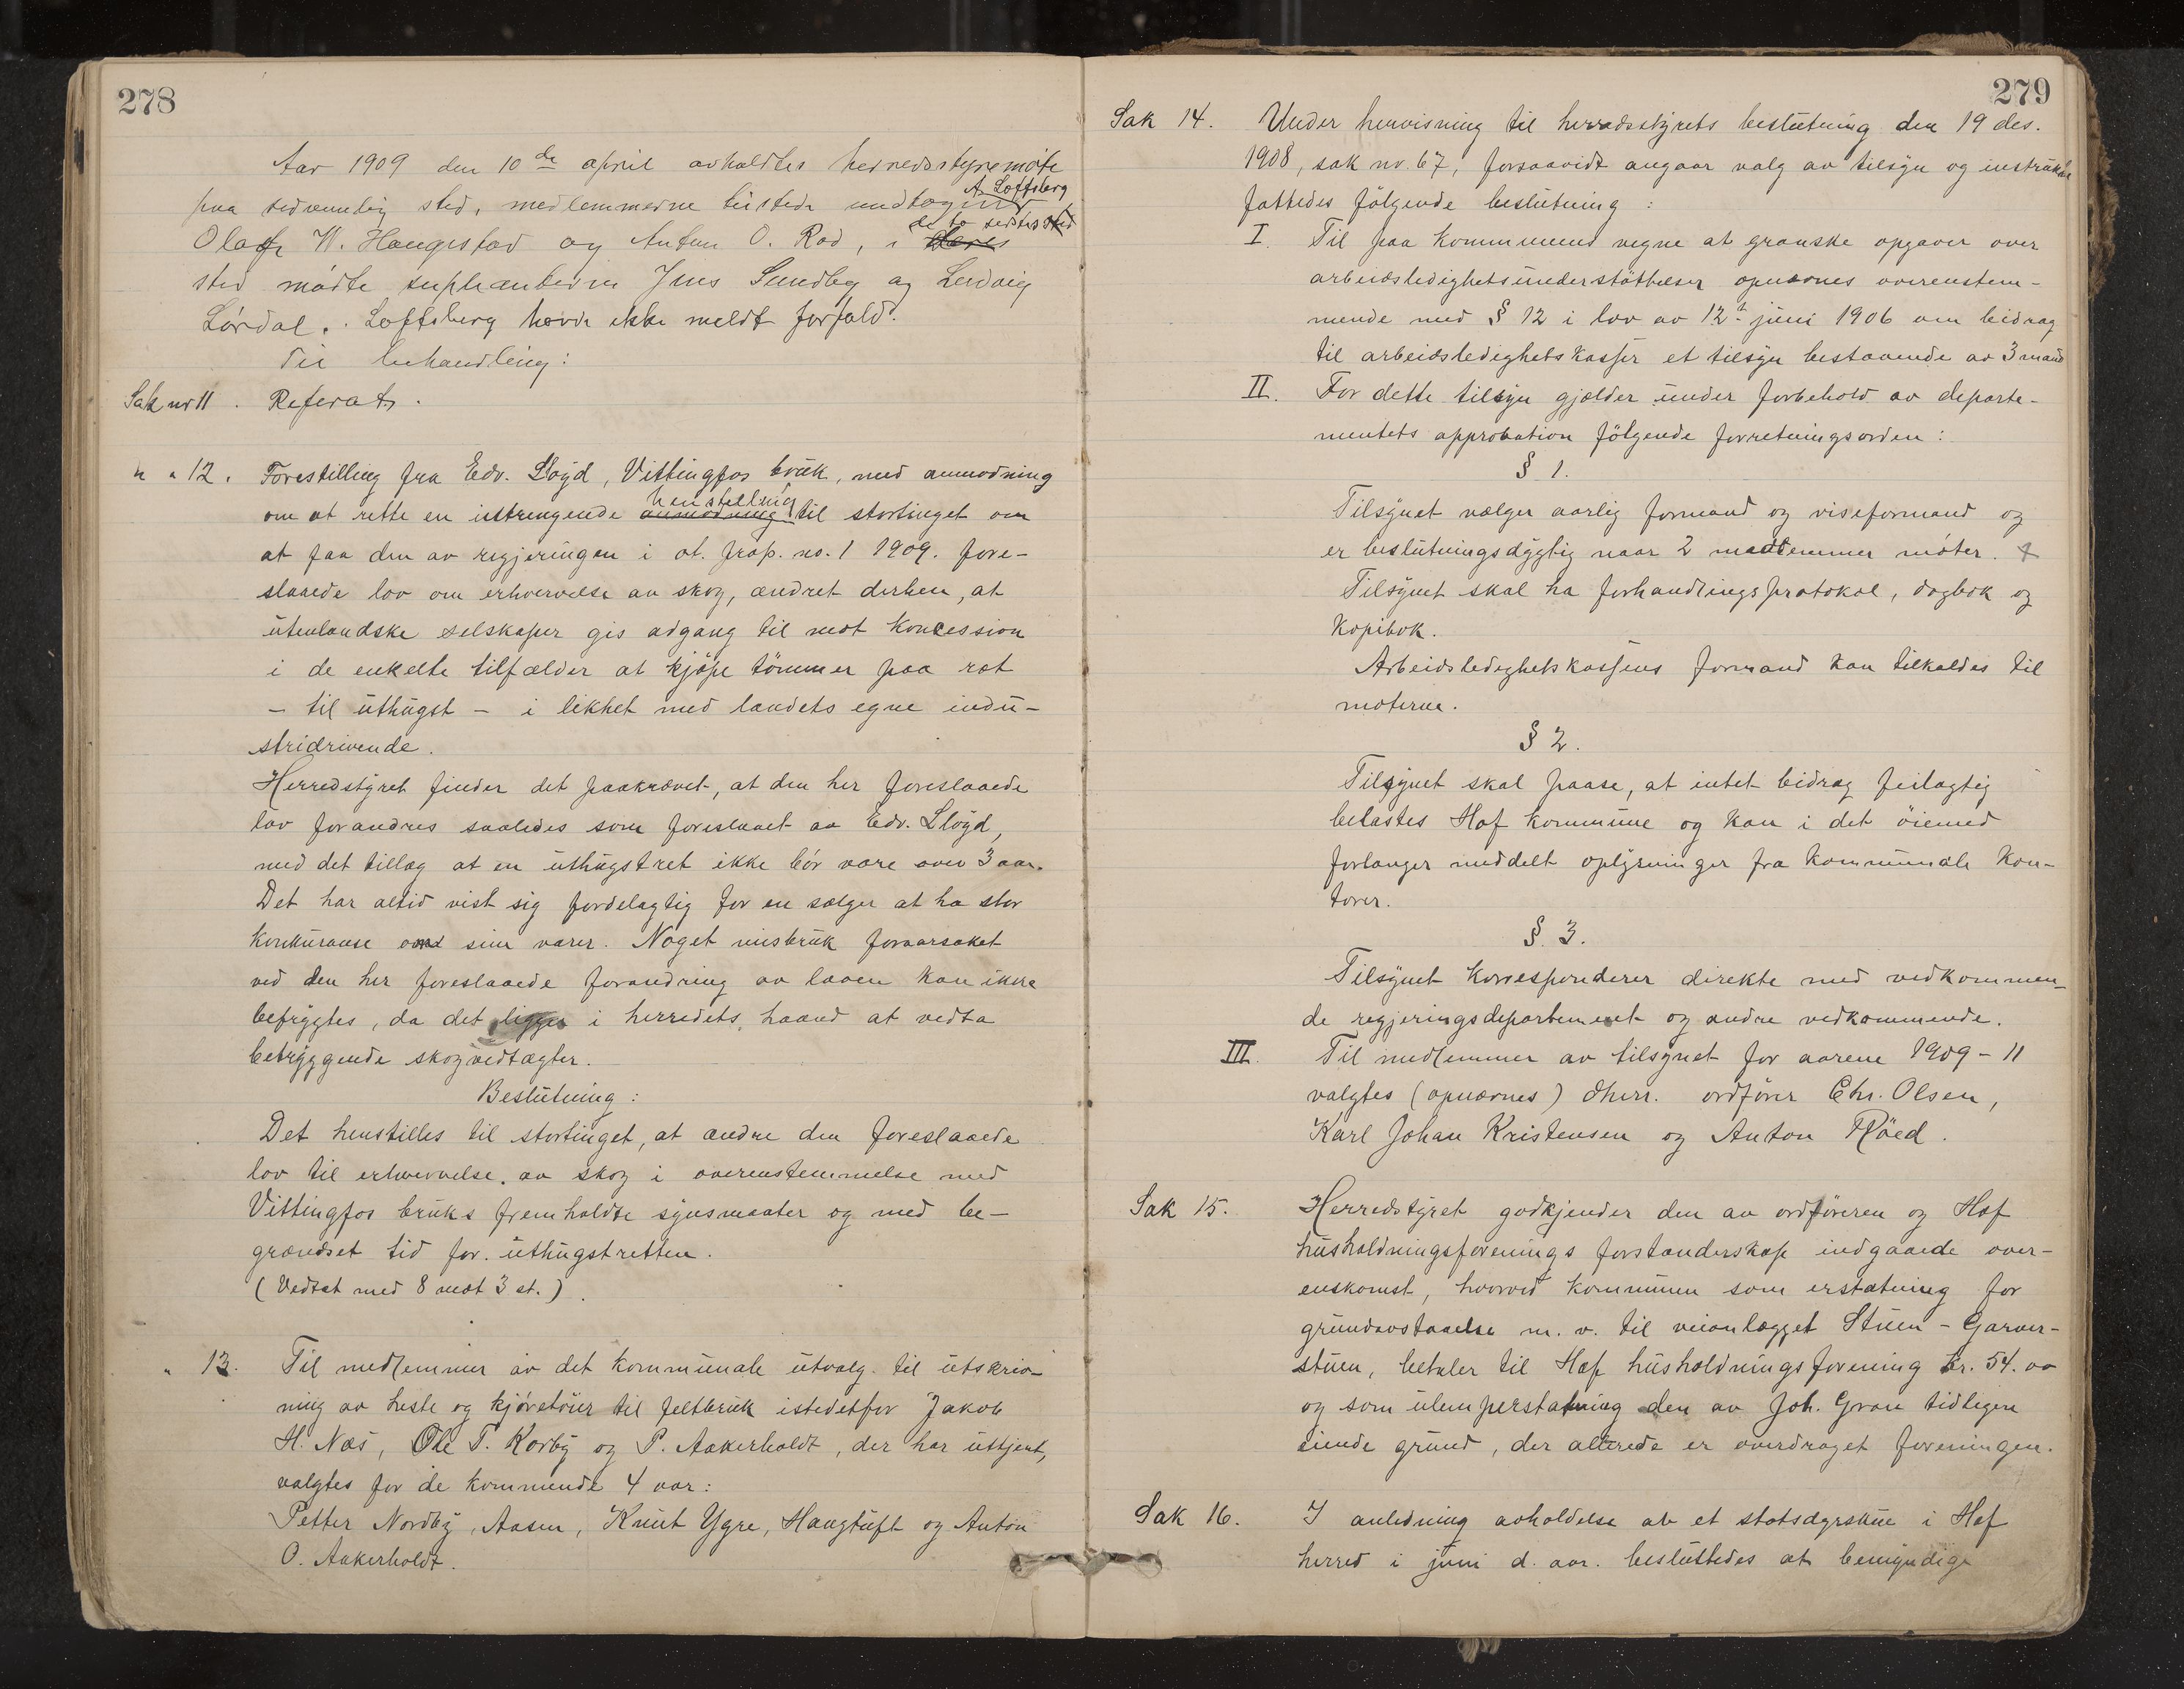 278
Aar 1909 den 10de april avholdtes herredsstyremøte
paa sedvanlig sted, medlemmerne tilstede undtagen A. Loftsberg
Olaf W. Haugestad og Anton O. Rød, i de to sidstes sted
sted mødte supleanterne Jens Sundby og Ludvig
Lørdal. Loftsberg havde ikke meldt forfald.
Til behandling:
Sak nr 11. Referat.
" " 12. Forestilling fra Edv. Lloyd, Vittingfos bruk, med anmodning
om at rette en indtrængende henstelling til stortinget om
at faa den av regjeringen i ot. prop. no. 1 1909. fore-
slaaede lov om erhvervelse av skog, ændret derhen, at
utenlandske selskaper gis adgang til mot koncession
i de enkelte tilfælder at kjøpe tømmer paa rot
- til uthugst - i likhet med landets egne indu-
stridrivende.
Herredstyret finder det paakrævet, at den her foreslaaede
lov forandres saaledes som foreslaaet av Edv. Lloyd,
med det tillæg at en uthugstret ikke bør vare over 3 aar.
Det har altid vist sig fordelagtig for en sælger at ha stor
konkuranse om sine varer. Noget misbruk foraarsaket
ved den her foreslaaede forandring av loven kan ikke
befrygtes, da det ligger i herredets haand at vedta
betryggende skogvedtægter.
Beslutning:
Det henstilles til stortinget, at ændre den foreslaaede
lov til erhvervelse av skog i overenstemmelse med
Vittingfos bruks fremholdte synsmaater og med be-
grændset tid for uthugstretten.
(Vedtat med 8 mot 3 st.)
" 13. Til medlemmer av det kommunale utvalg til utskriv-
ning av heste og kjøretøier til feltbruk istedetfor Jakob
H. Næs, Ole T. Korby og P. Aakerholdt, der har uttjent,
valgtes for de kommende 4 aar:
Petter Nordby, Aasen, Knut Ygre, Haugtuft og Anton
O. Aakerholdt.
279
Sak 14. Under henvisning til herredsstyrets beslutning den 19 des.
1908, sak nr. 67, forsaavidt angaar valg av tilsyn og instruks
fattedes følgende beslutning:
I. Til paa kommunens vegne at granske opgaver over
arbeidsledighetsunderstøttelser opnævnes overenstem-
mende med § 12 i lov av 12te juni 1906 om bidrag
til arbeidsledighetskasser et tilsyn bestaaende av 3 mand
II. For dette tilsyn gjælder under forbehold av departe-
mentets approbation følgende forretningsorden:
§ 1.
Tilsynet vælger aarlig formand og viseformand og
er beslutningsdygtig naar 2 medlemmer møter.
Tilsynet skal ha forhandlingsprotokol, dagbok og
kopibok.
Arbeidsledighetskassens formand kan tilkaldes til
møterne.
§ 2.
Tilsynet skal paase, at intet bidrag feilagtig
belastes Hof kommune og kan i det øiemed
forlanger meddelt oplysninger fra kommunale kon-
torer.
§. 3.
Tilsynet korresponderer direkte med vedkommen-
de regjeringsdepartement og andre vedkommende.
III. Til medlemmer av tilsynet for aarene 1909-11
valgtes (opnævnes) dherr. ordfører Chr. Olsen,
Karl Johan Kristensen og Anton Røed.
Sak 15. Herredstyret godkjender den av ordføreren og Hof
husholdningsforenings forstanderskap indgaaede over-
enskomst, hvorved kommunen som erstatning for
grundavstaaelse m. v. til veianlægget Stuen - Garver-
stuen, betaler til Hof husholdningsforening kr. 54.00
og som ulemperstatning den av Joh. Gran tidligere
eiende grund, der allerede er overdraget foreningen.
Sak 16. I anledning avholdelse av et statsdyrskue i Hof
herred i juni d. aar. besluttedes at bemyndige